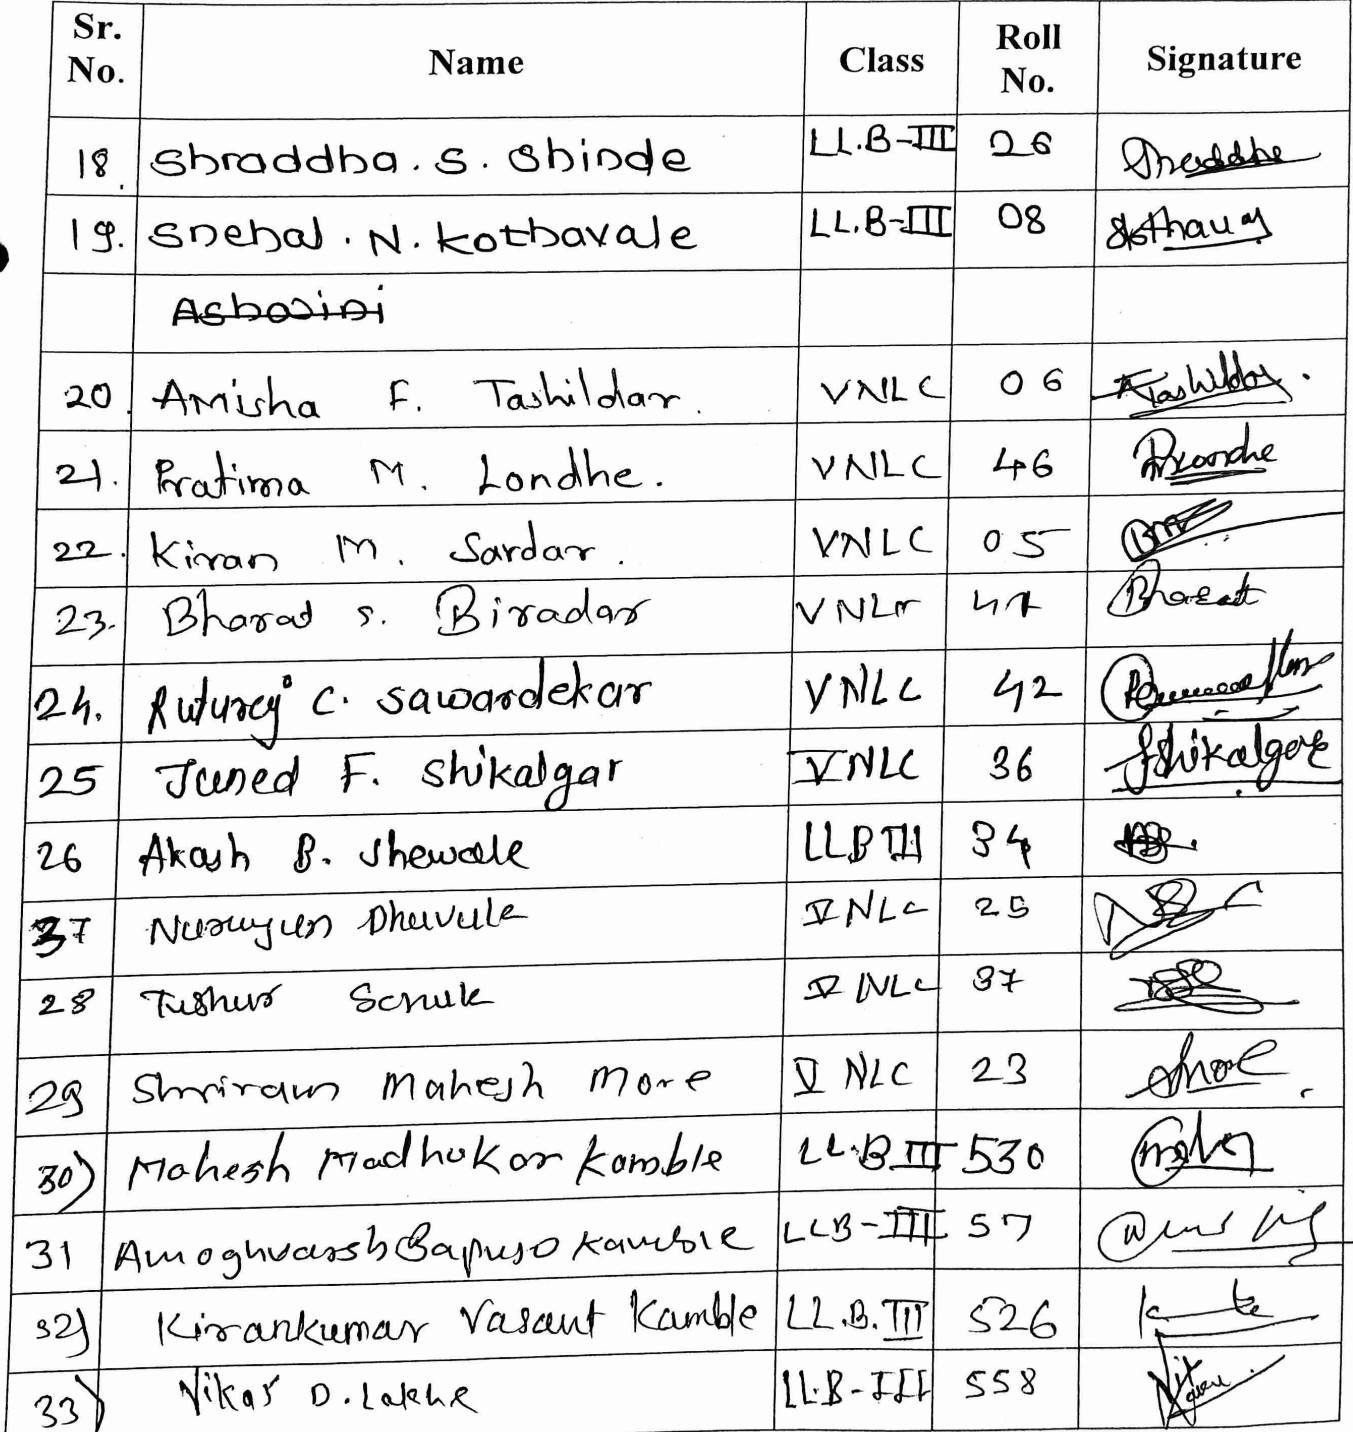 Sr. No. Name Class Roll No. Signature
18. Shraddha. S. Shinde LL.B-III 26 Shraddha
19. Snehal. N. Kothavale LL.B-III 08
Ashwini
20. Amisha F. Tashildar. VNLC 06 Tashildar.
21. Pratima M. Londhe. VNLC 46
22. Kiran M. Sardar. VNLC 05
23. Bharat S. Biradar VNLC 47 Bharat
24. Ruturaj C. Sawardekar VNLC 42
25 Juned F. Shikalgar V NLC 36 Shikalgar
26 Akash B. Shewale LLB III 34
37 Narayan Dhavale V NLC 25
28 Tushar V NLC 37
29 Shriram Mahesh More V NLC 23
30) Mahesh Madhukar Kamble LL.B III 530
31 Amoghvarsh Bapuso Kamble LLB-III 57
32) Kirankumar Vasant Kamble LL.B.III 526
33) Vikas D. Lakhe LL.B-III 558